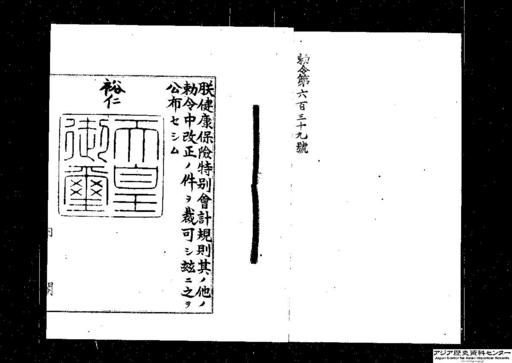 勅令第六百三十九號
朕健康保險特別會計規則其ノ他ノ
勅令中改正ノ件ヲ裁可シ玆ニ之ヲ
公布セシム
裕仁
天皇
御璽
内閣
アジア歴史資料センター
Japan Center for Asian Historical Records